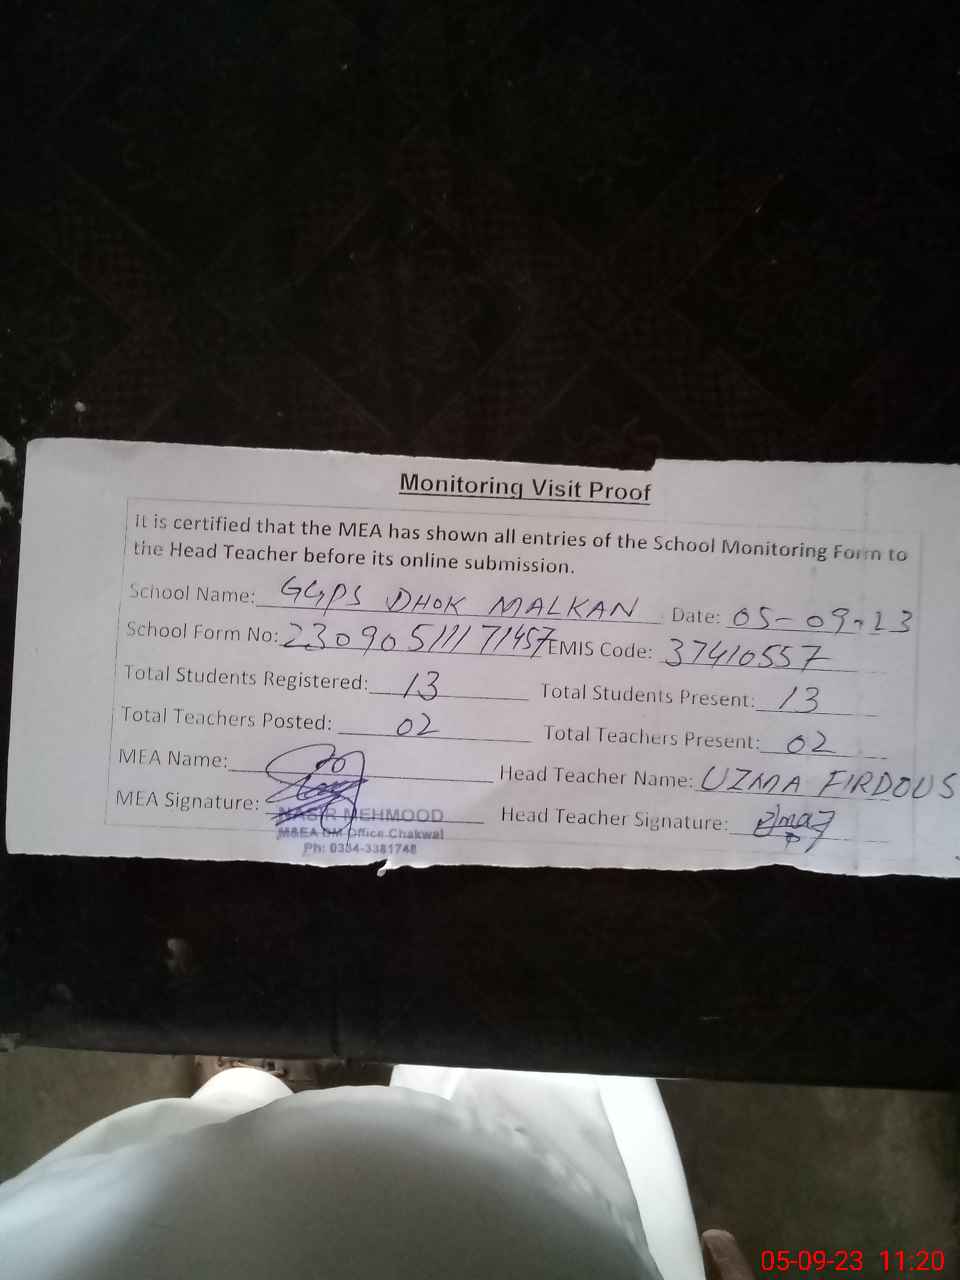 Monitoring Visit Proof
It is certified that the MEA has shown all entries of the School Monitoring Form to
the Head Teacher before its online submission.
School Name: GGPS DHOK MALKAN Date: 05-09-23
School Form No: 230905111171457 EMIS Code: 37410557
Total Students Registered: 13 Total Students Present: 13
Total Teachers Posted: 02 Total Teachers Present: 02
MEA Name: Head Teacher Name: UZMA FIRDOUS
MEA Signature: Head Teacher Signature:
NASIR MEHMOOD
M&EA DM Office Chakwal
Ph: 0334-3381748
05-09-23 11:20